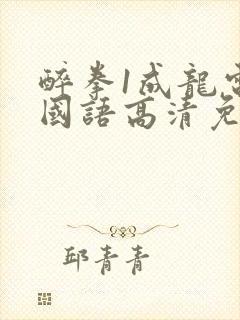 醉拳1成龍電
國語高清免
邱青青